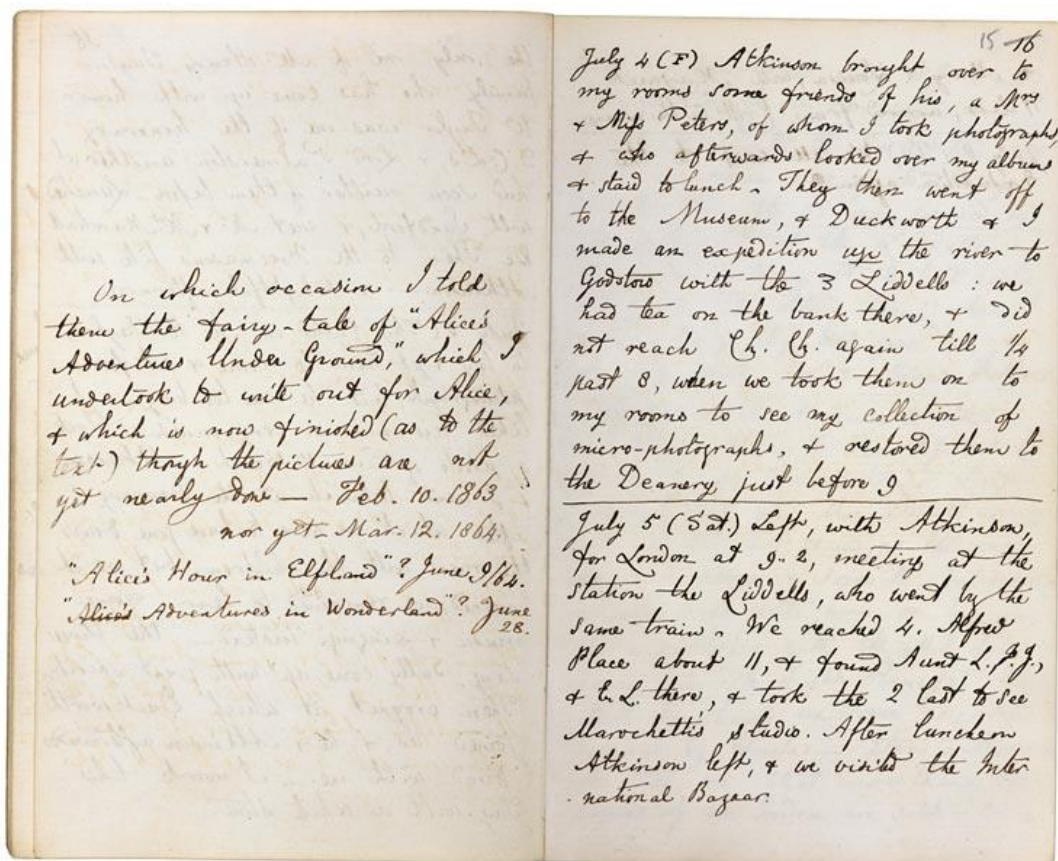 On which occasion I told
them the fairy-tale of "Alice's
Adventures Under Ground," which I
undertook to write out for Alice,
& which is now finished (as to the
text) though the pictures are not
yet nearly done — Feb. 10. 1863
nor yet – Mar. 12. 1864.
"Alice's Hour in Elfland"? June 9/64.
"Alice's Adventures in Wonderland"? June
28.
15 16
July 4 (F) Atkinson brought over to
my rooms some friends of his, a Mrs
& Miss Peters, of whom I took photographs,
& who afterwards looked over my albums
& staid to lunch. They then went off
to the Museum, & Duckworth & I
made an expedition up the river to
Godstow with the 3 Liddells : we
had tea on the bank there, & did
not reach Ch. Ch. again till 1/4
past 8, when we took them on to
my rooms to see my collection of
micro-photographs, & restored them to
the Deanery just before 9
July 5 (Sat.) Left, with Atkinson,
for London at 9.2, meeting at the
station the Liddells, who went by the
same train. We reached 4. Alfred
Place about 11, & found Aunt L. P. J.,
& E. L. there, & took the 2 last to see
Marochetti's studio. After luncheon
Atkinson left, & we visited the Inter
national Bazaar.